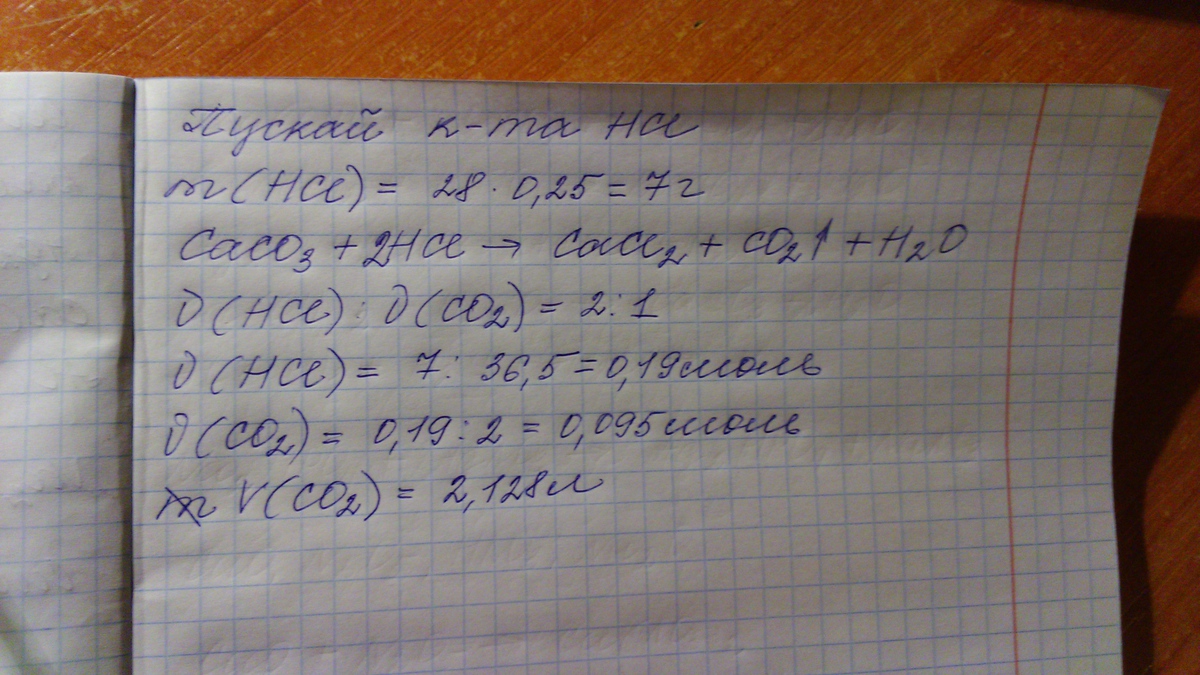 Пускай к-та HCl
m(HCl) = 28 · 0,25 = 7 г
CaCO₃ + 2HCl → CaCl₂ + CO₂↑ + H₂O
ν(HCl) : ν(CO₂) = 2 : 1
ν(HCl) = 7 : 36,5 = 0,19 моль
ν(CO₂) = 0,19 : 2 = 0,095 моль
V(CO₂) = 2,128 л